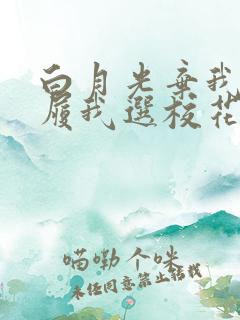 白月光棄我
履我選校花
喵嘞个咪
未经同意禁止转载